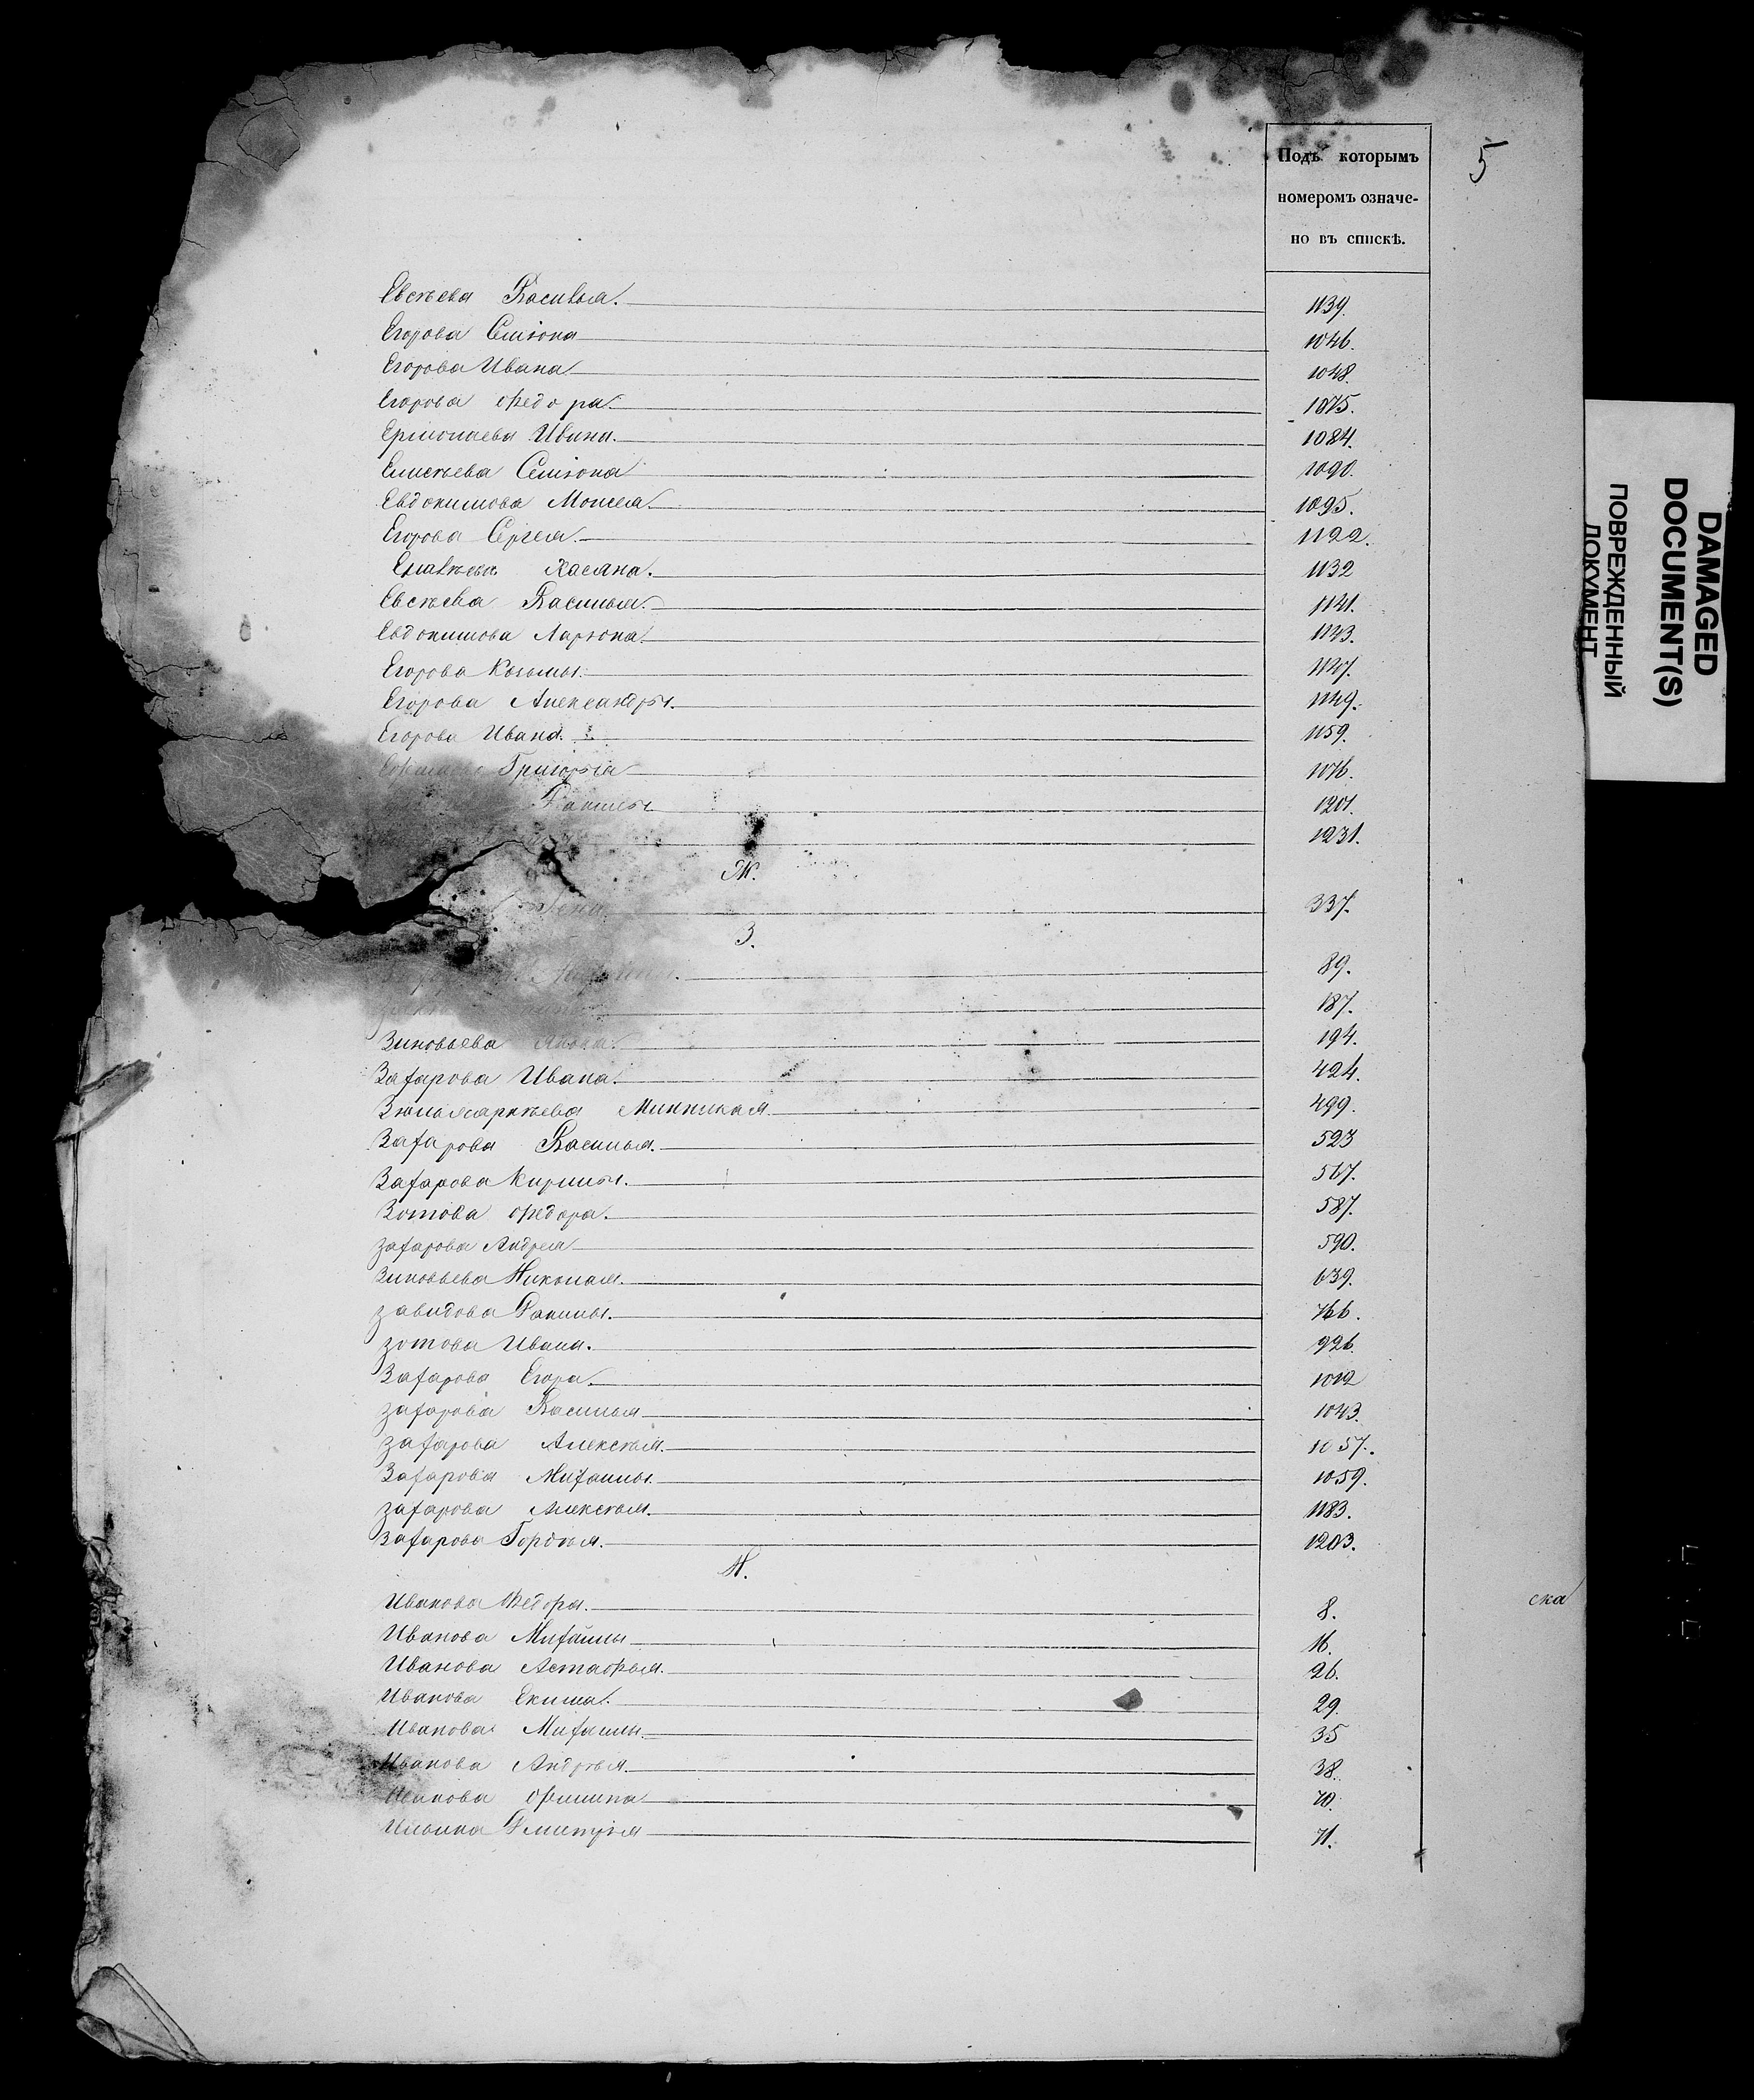 5
Подъ которымъ
номеромъ означе-
но въ спискѣ.
Евсѣева Василья. 1139.
Егорова Семіона 1046.
Егорова Ивана 1048.
Егорова Ѳедора. 1075.
Ермолаева Ивана. 1084.
Елисѣева Семіона 1090.
Евдокимова Моисея. 1095.
Егорова Сергея. 1122.
Касяна. 1132
Евсѣева Василья. 1141.
Евдокимова Ларіона. 1143.
Егорова Козьмы. 1147.
Егорова Александры. 1149.
Егорова Ивана. 1159.
Григорья 1076.
Данилы 1201.
1231.
Ж.
337.
З.
89.
187.
Зиновьева Якова. 194.
Захарова Ивана. 424.
Миннихая 499.
Захарова Василья. 523
Захарова Кирилы. 567.
Зотова Ѳедора. 587.
Захарова Андрея 590.
Зиновьева Николая. 639.
Завидова Данилы. 766.
Зотова Ивана. 926.
Захарова Егора. 1012
Захарова Василья 1043.
Захарова Алексѣя. 1057.
Захарова Михаилы. 1059.
Захарова Алексѣя. 1183.
Захарова Гордѣя. 1203.
И.
Иванова Ѳедора. 8.
Иванова Михайлы 16.
Иванова Астафья. 26.
Иванова Екима. 29.
Иванова Михаилы 35
Иванова Андрѣя. 38.
Иванова Филипа 70.
Ильина Дмитрія 71.
ска
DAMAGED
DOCUMENT(S)
ПОВРЕЖДЕННЫЙ
ДОКУМЕНТ